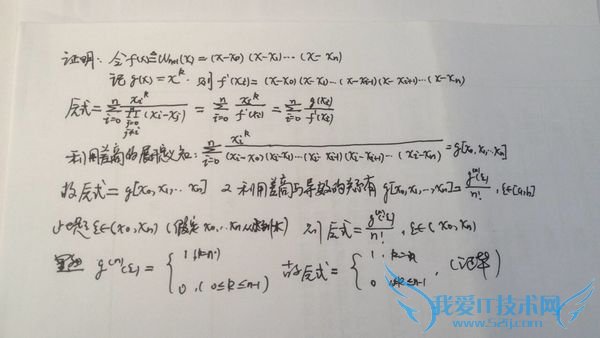 证明: 令 f(x)≜Wn+1(x) = (x-x0)(x-x1)…(x-xn)
记 g(x) = x^k. 则 f'(xi) = (xi-x0)(xi-x1)…(xi-xi-1)(xi-xi+1)…(xi-xn)
左式 = Σ_{i=0}^{n} xi^k / Π_{j=0, j≠i}^{n}(xi-xj) = Σ_{i=0}^{n} xi^k / f'(xi) = Σ_{i=0}^{n} g(xi) / f'(xi)
利用差商的 知: Σ_{i=0}^{n} xi^k / (xi-x0)(xi-x1)…(xi-xi-1)(xi-xi+1)…(xi-xn) = g[x0,x1…xn]
故左式 = g[x0,x1,…xn] 又利用差商与导数的关系有 g[x0,x1,…,xn] = g^(n)(ξ) / n!, ξ∈[a,b]
ξ∈(x0,xn) (假定 x0,…xn 从 ) 则左式 = g^(n)(ξ) / n!, ξ∈(x0,xn)
g^(n)(ξ) = { 0, (0≤k≤n-1) 故左式 = { 1, k=n 0 0≤k≤n-1 , (证毕)
我爱IT技术网
www.52ij.com